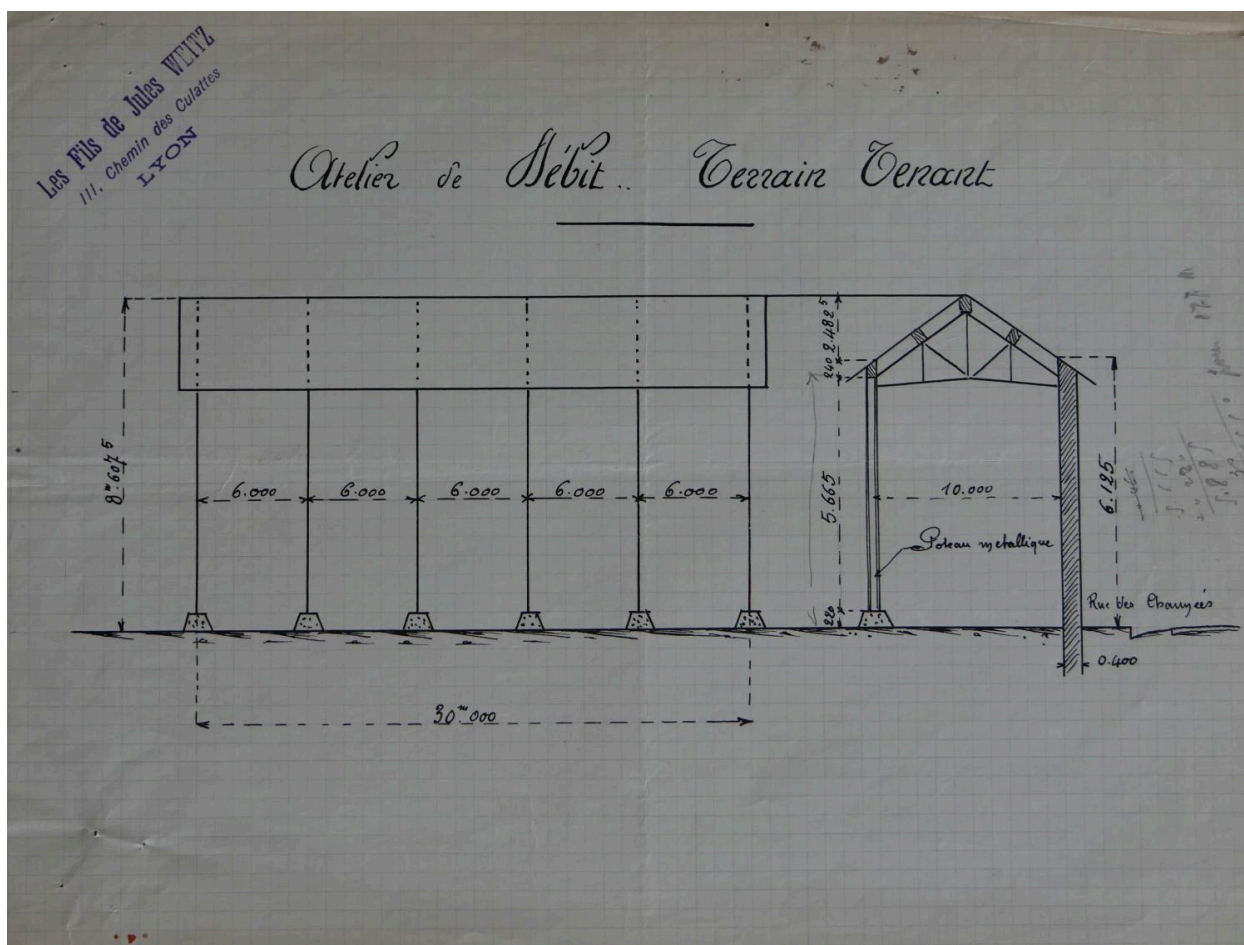 Les Fils de Jules WEITZ
111, Chemin des Culattes
LYON
Atelier de Débit.. Terrain Tenant
8.ᵐ607⁵
6.000
6.000
6.000
6.000
6.000
30ᵐ000
2.482⁵
240
5.665
220
10.000
Poteau metallique
6.125
Rue des
0.400
5.665
220
5.885